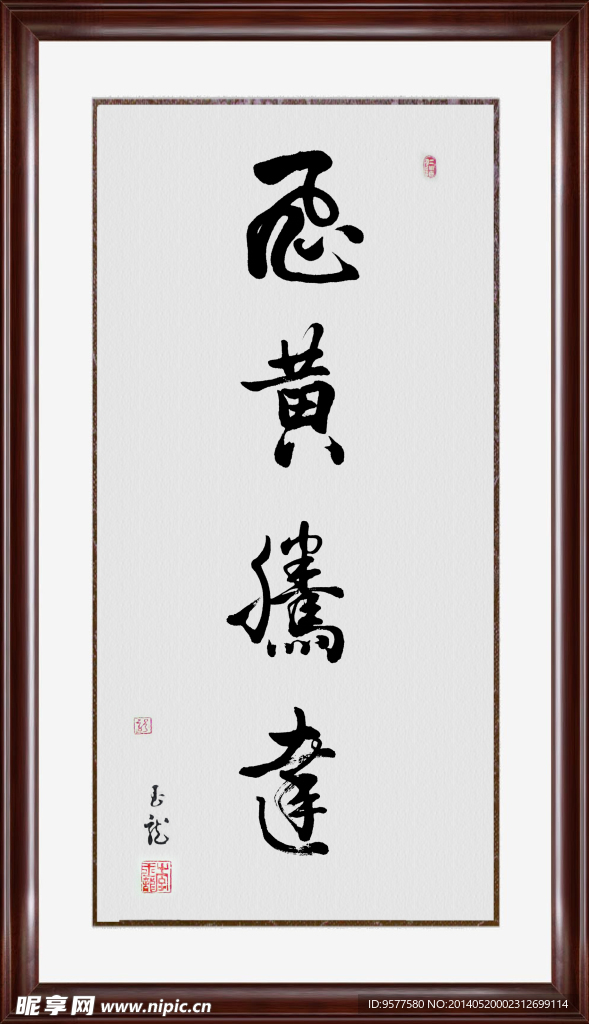 飛黃騰達
玉龍
昵享网 www.nipic.cn
ID:9577580 NO:20140520002312699114